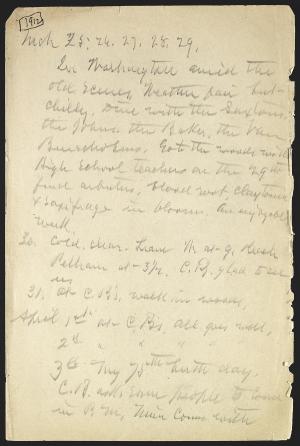 1912
Mch 25; 26. 27, 28. 29.
In Washington amid the
old scenes, Weather fair but
chilly. Dine with the Saxtons,
the Manns. the Bakers, the Van
Got the woods with
High School teachers on the 29th
find arbutus, blood root, claytonia
& saxifrage in bloom. An enjoyable
week.
30. Cold, clear. Leave W at 9. Reach
Pelham at 3½, C.B. glad to see
us
31. at C.B's, walk in woods,
April 1st at C.B's, all goes well,
2d. " " " "
3d. My 75th birth day.
C.B. asks some people to come
in P.M, Nine come with